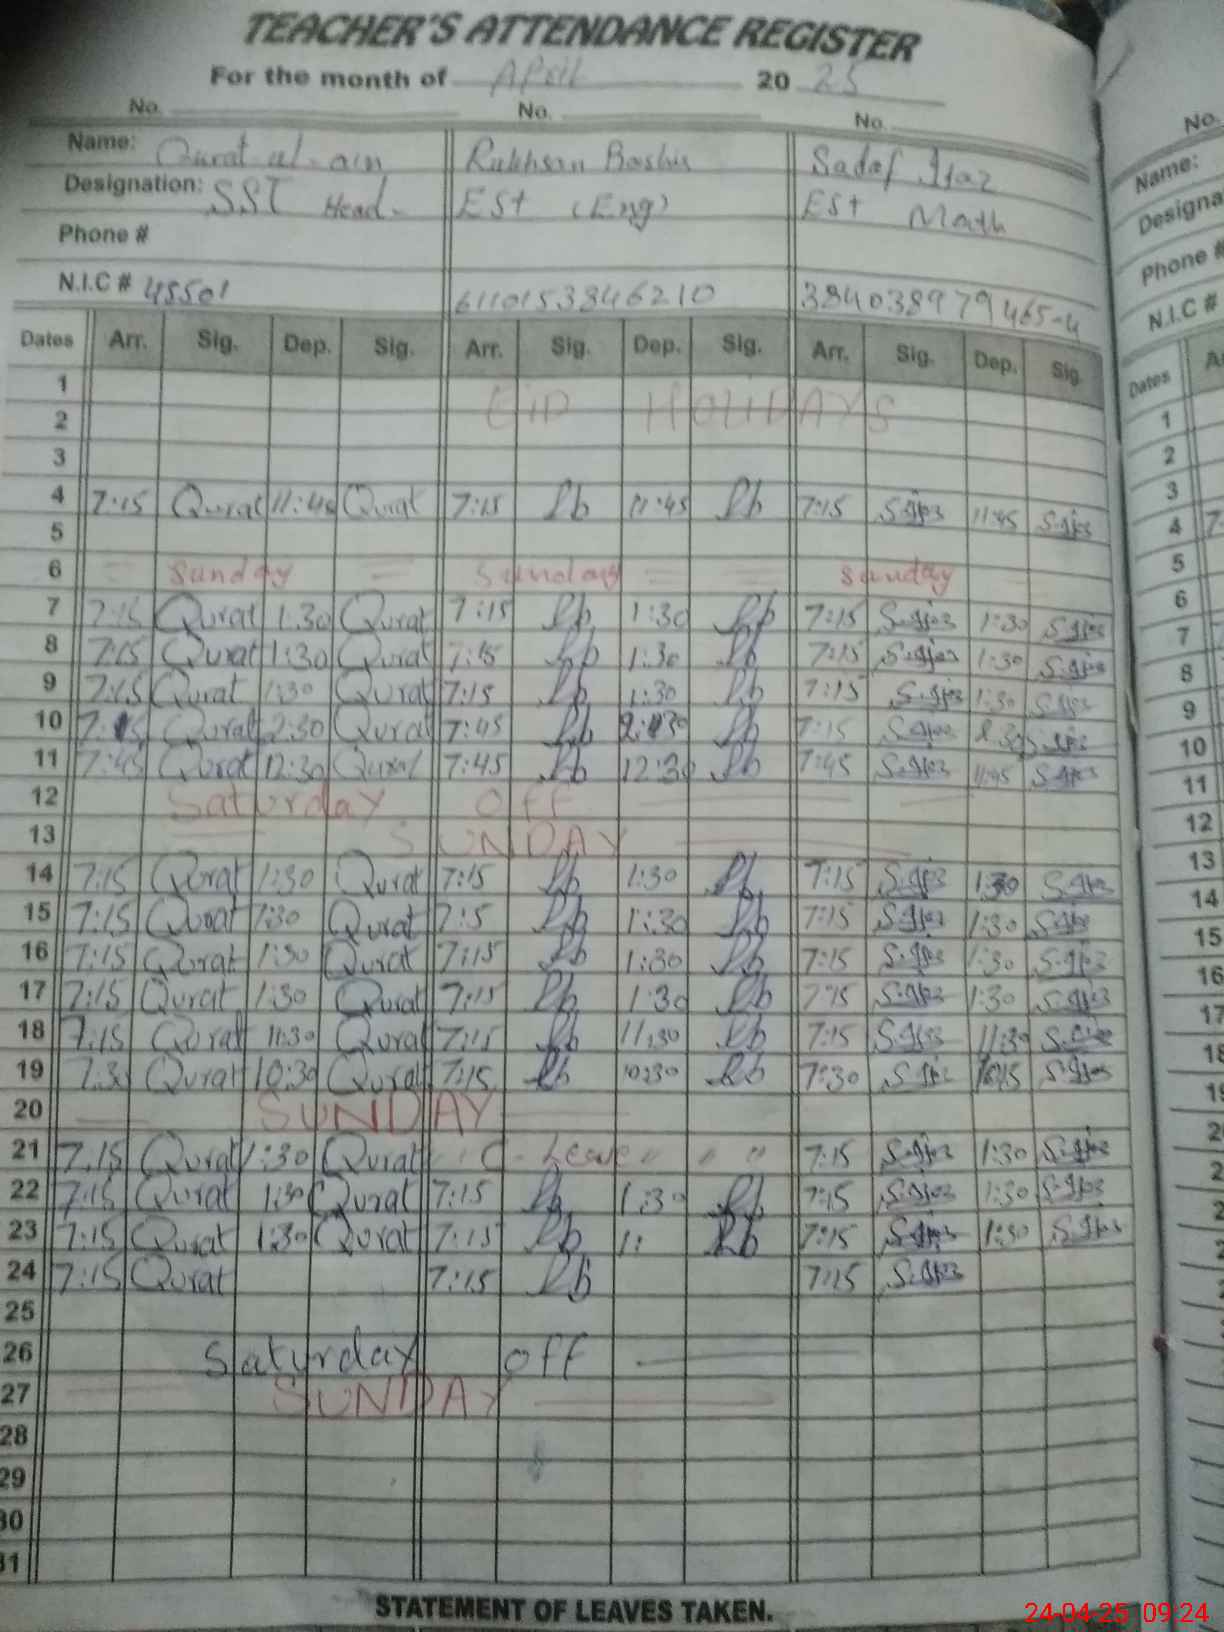 TEACHER'S ATTENDANCE REGISTER
For the month of April 2025
No. No. No.
Name: Qurat-ul-ain Rukhsan Bashir Sadaf Ijaz
Designation: SST Head EST (Eng) EST Math
Phone #
N.I.C # 45501 6110153846210 384038979465-4
Dates Arr. Sig. Dep. Sig. Arr. Sig. Dep. Sig. Arr. Sig. Dep. Sig.
1 EID HOLIDAYS
2
3
4 7:15 Qurat 11:45 Qurat 7:15 Rb 11:45 Rb 7:15 S.Ijaz 11:45 S.Ijaz
5
6 Sunday Sunday Sunday
7 7:15 Qurat 1:30 Qurat 7:15 Rb 1:30 Rb 7:15 S.Ijaz 1:30 S.Ijaz
8 7:15 Qurat 1:30 Qurat 7:15 Rb 1:30 Rb 7:15 S.Ijaz 1:30 S.Ijaz
9 7:15 Qurat 1:30 Qurat 7:15 Rb 1:30 Rb 7:15 S.Ijaz 1:30 S.Ijaz
10 Qurat 2:30 Qurat 7:45 Rb 2:30 Rb 7:15 S.Ijaz 2:30 S.Ijaz
11 7:45 Qurat 12:30 Qurat 7:45 Rb 12:30 Rb 7:45 S.Ijaz 11:45 S.Ijaz
12 Saturday OFF
13 SUNDAY
14 7:15 Qurat 1:30 Qurat 7:15 Rb 1:30 Rb 7:15 S.Ijaz 1:30 S.Ijaz
15 7:15 Qurat 1:30 Qurat 7:5 Rb 1:30 Rb 7:15 S.Ijaz 1:30 S.Ijaz
16 7:15 Qurat 1:30 Qurat 7:15 Rb 1:30 Rb 7:15 S.Ijaz 1:30 S.Ijaz
17 7:15 Qurat 1:30 Qurat 7:15 Rb 1:30 Rb 7:15 S.Ijaz 1:30 S.Ijaz
18 7:15 Qurat 11:30 Qurat 7:15 Rb 11:30 Rb 7:15 S.Ijaz 11:30 S.Ijaz
19 7:30 Qurat 10:30 Qurat 7:15 Rb 10:30 Rb 7:30 S.Ijaz S.Ijaz
20 SUNDAY
21 7:15 Qurat 1:30 Qurat " C-Leave " " " 7:15 S.Ijaz 1:30 S.Ijaz
22 7:15 Qurat 1:30 Qurat 7:15 Rb 1:30 Rb 7:15 S.Ijaz 1:30 S.Ijaz
23 7:15 Qurat 1:30 Qurat 7:15 Rb 1: Rb 7:15 S.Ijaz 1:30 S.Ijaz
24 7:15 Qurat 7:15 Rb 7:15 S.Ijaz
25
26 Saturday OFF
27 SUNDAY
28
29
30
31
STATEMENT OF LEAVES TAKEN.
No.
Name:
Designa
Phone #
N.I.C #
Dates A
1
2
3
4 7
5
6
7
8
9
10
11
12
13
14
15
16
17
18
24-04-25 09:24